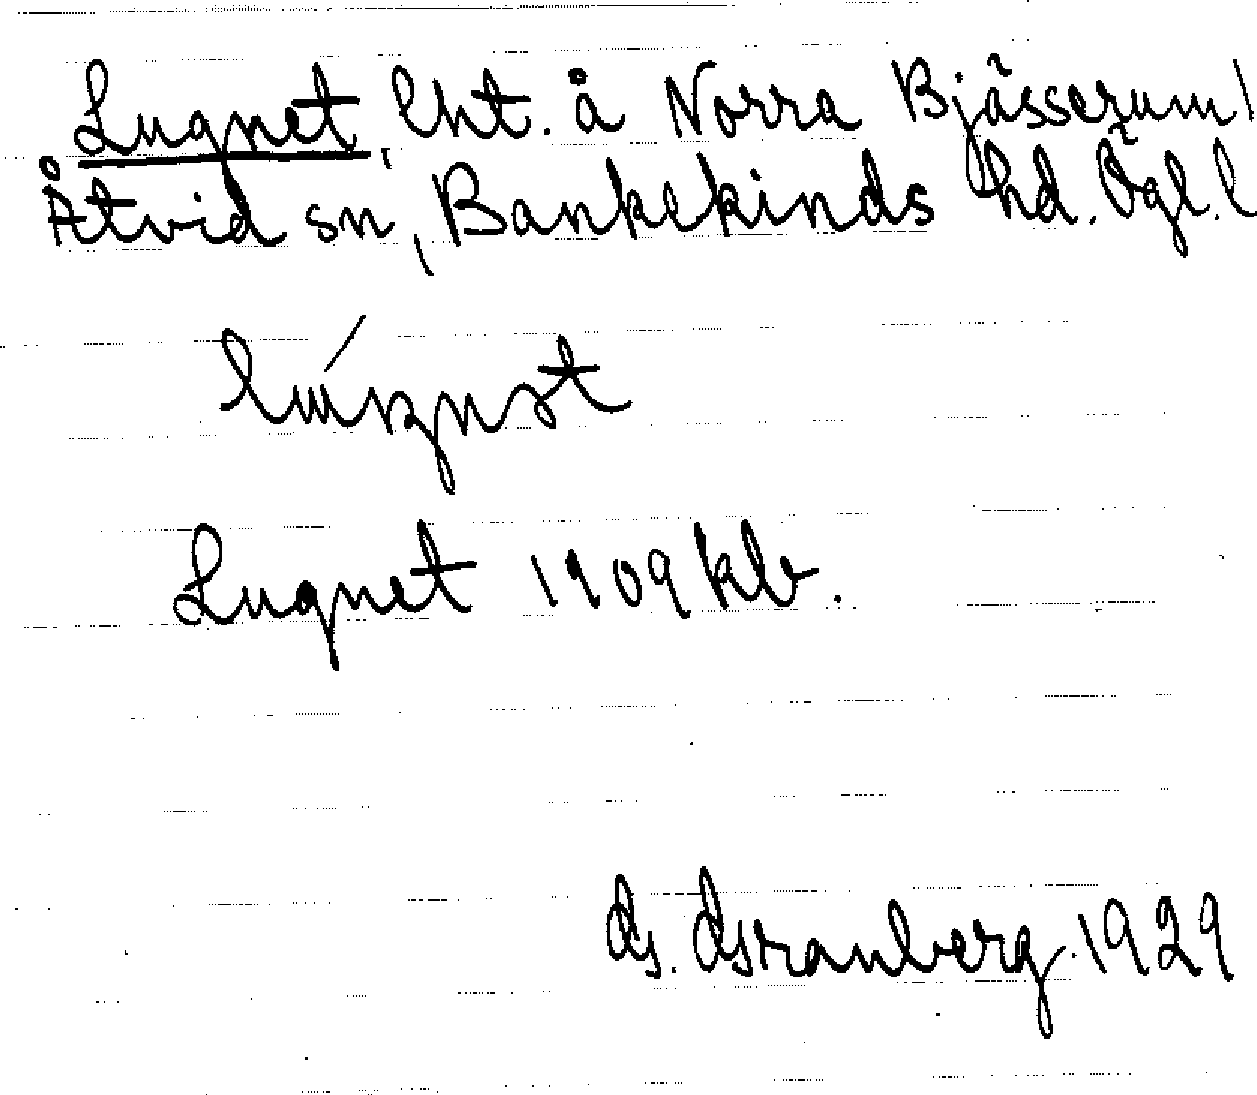 Lugnet, lht. å Norra Bjässerum,
Åtvid sn, Bankekinds hd. Ögl. l
Lugnet 1909 kb.
1929